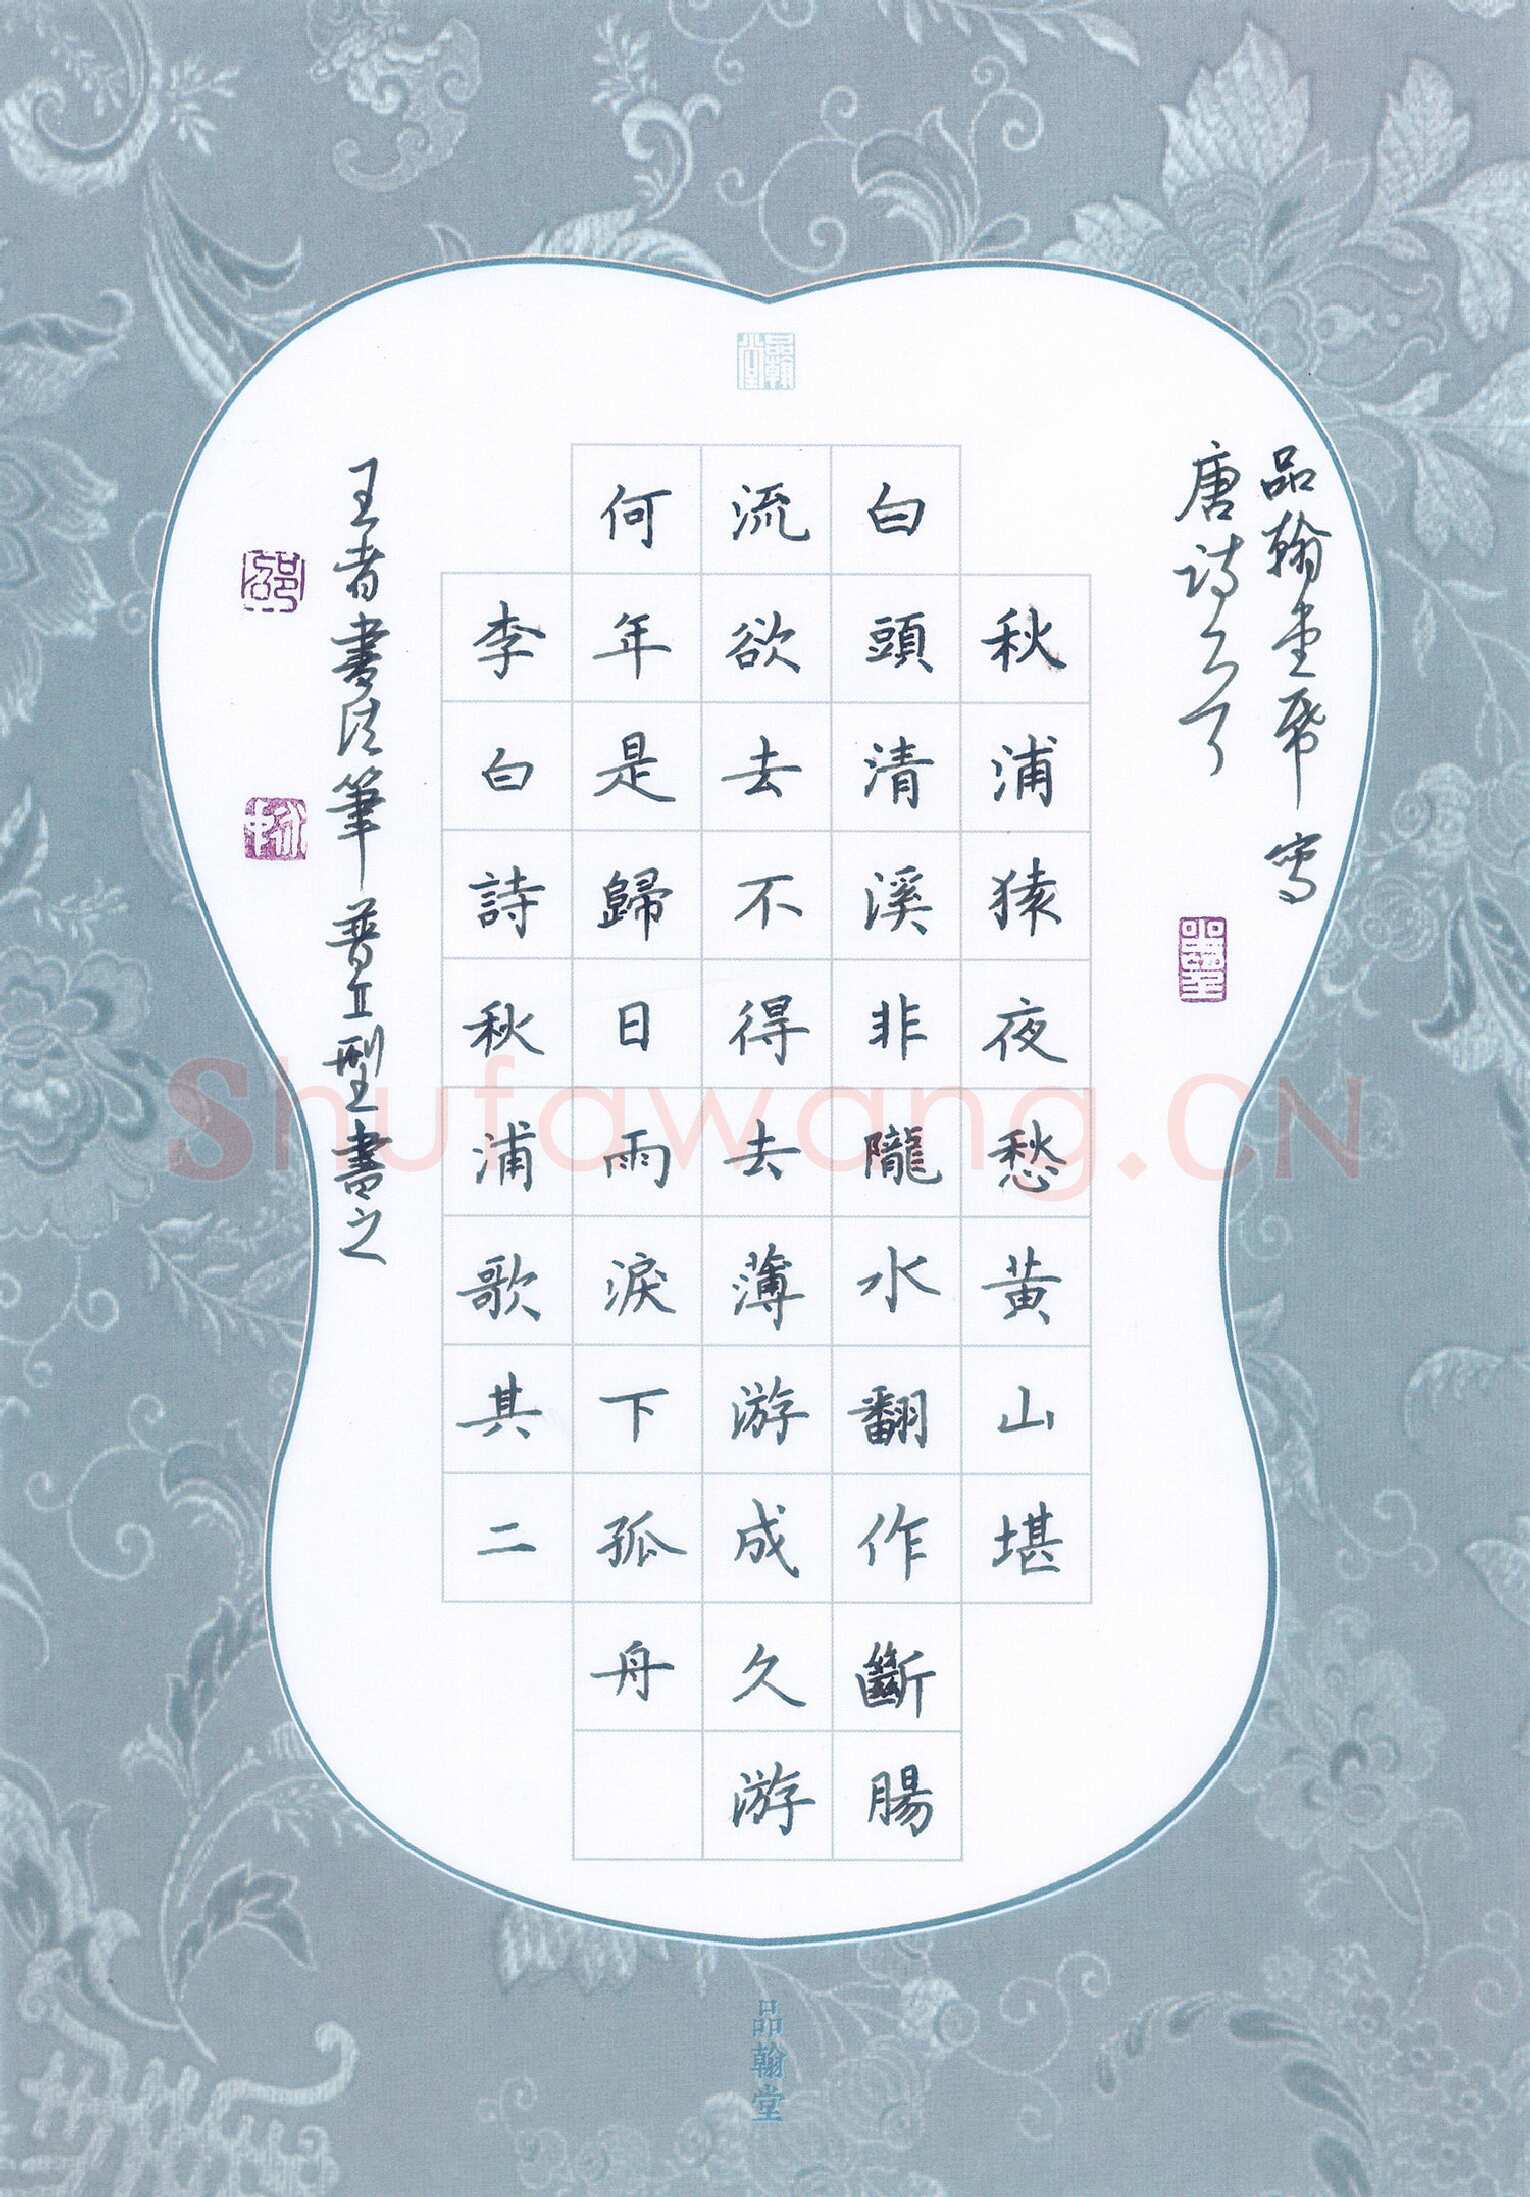 品翰堂
品翰堂
唐詩
秋浦猿夜愁黄山堪
白頭清溪非隴水翻作斷腸
流欲去不得去薄游成久游
何年是歸日雨淚下孤舟
李白詩秋浦歌其二
王者書法筆普II型書之
品翰堂
Shufawang.CN